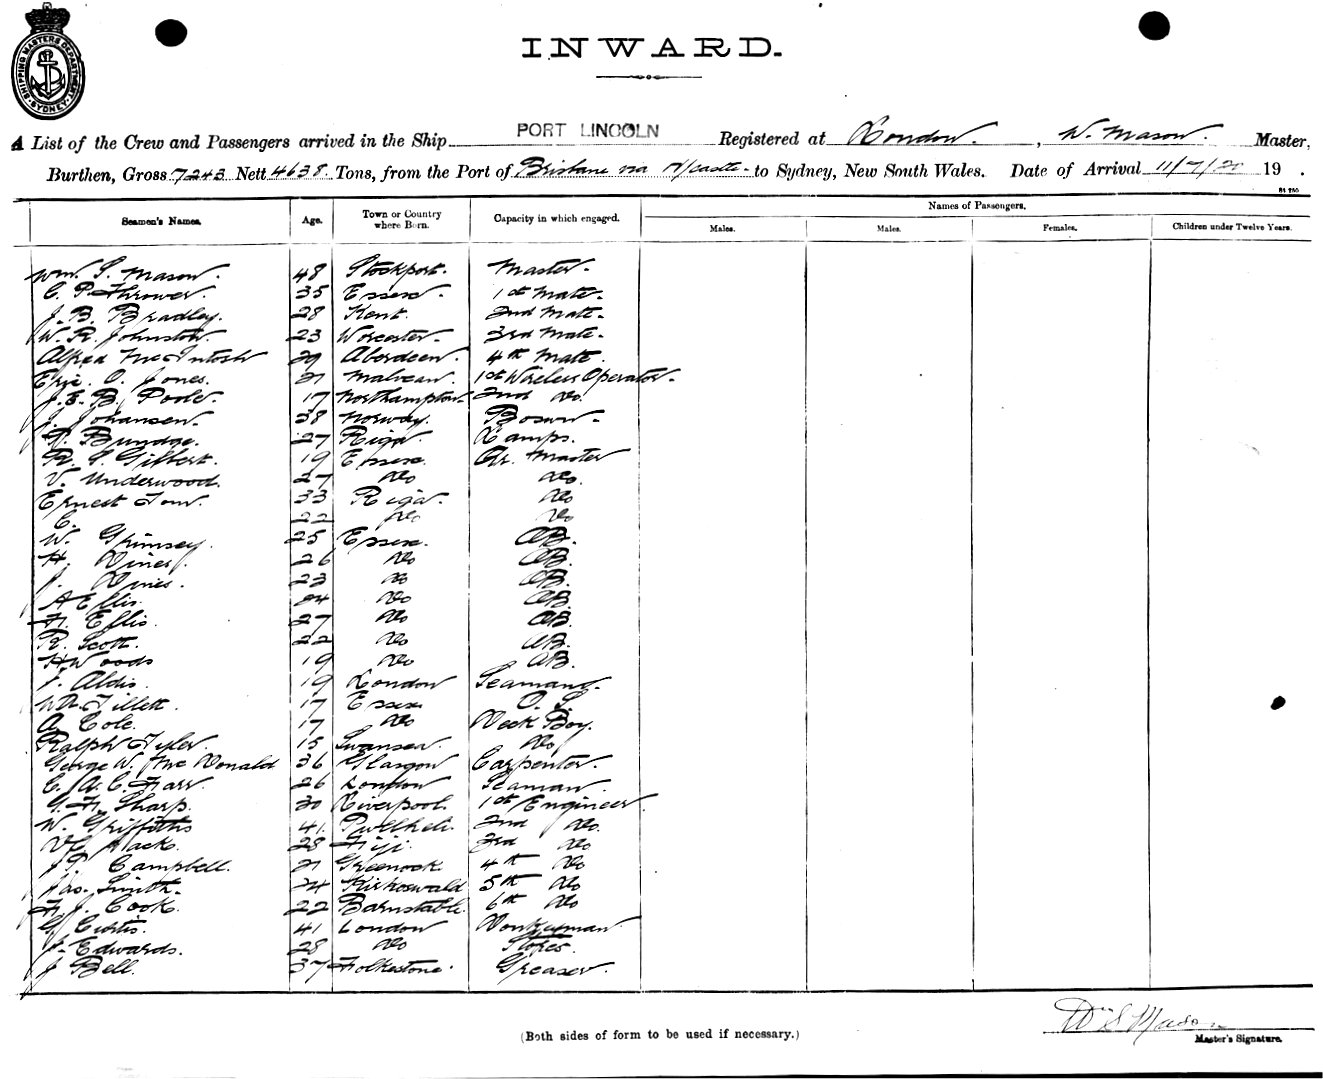 SHIPPING MASTERS DEPARTMENT SYDNEY
INWARD.
A List of the Crew and Passengers arrived in the Ship PORT LINCOLN Registered at London. , W. Mason. Master,
Burthen, Gross 7243 Nett 4638 Tons, from the Port of Brisbane via N/castle to Sydney, New South Wales. Date of Arrival 11/7/20 19 .
Names of Passengers.
Seamen's Names. Age. Town or Country where Born. Capacity in which engaged. Males. Males. Females. Children under Twelve Years.
Wm. S. Mason. 48 Stockport. Master.
C. P. Thrower. 35 Essex. 1st Mate.
J. B. Bradley. 28 Kent. 2nd Mate.
W. R. Johnston. 23 Worcester. 3rd Mate.
Alfred McIntosh 29 Aberdeen. 4th Mate.
Eric. O. Jones. 21 Malvern. 1st Wireless Operator.
J. E. B. Poole. 17 Northampton. 2nd Do.
J. Johansen. 38 Norway. Bosun.
27 Riga. Lamps.
R. S. Gilbert. 19 Essex. Qr. Master
V. Underwood. 27 Do Do.
Ernest 33 Riga. Do
C. 22 Do Do
W. Grimsey. 25 Essex. AB.
H. Vines. 26 Do AB.
J. Vines. 23 Do AB.
A Ellis. 24 Do AB.
H. Ellis. 27 Do AB.
R. Scott. 22 Do AB.
H Woods 19 Do AB.
J. Aldis. 19 London Seaman.
Tillett. 17 Essex O. S.
A. Cole. 17 Do Deck Boy.
Ralph Tyler. 15 Swansea. Do
George W. McDonald 36 Glasgow Carpenter.
C. A. C. Farr. 26 London Seaman.
G. H. Sharp. 30 Liverpool. 1st Engineer
W. Griffiths 41. Pwllheli. 2nd Do.
28 Fiji. 3rd Do
J. P. Campbell. 21 Greenock. 4th Do
Jas. Smith. 24 Kirkoswald 5th Do
H. J. Cook. 22 Barnstable. 6th Do
G. Curtis. 41 London Donkeyman
J. Edwards. 28 Do Stores.
J Bell. 37 Folkestone. Greaser.
Wm S Mason
(Both sides of form to be used if necessary.)
Master's Signature.